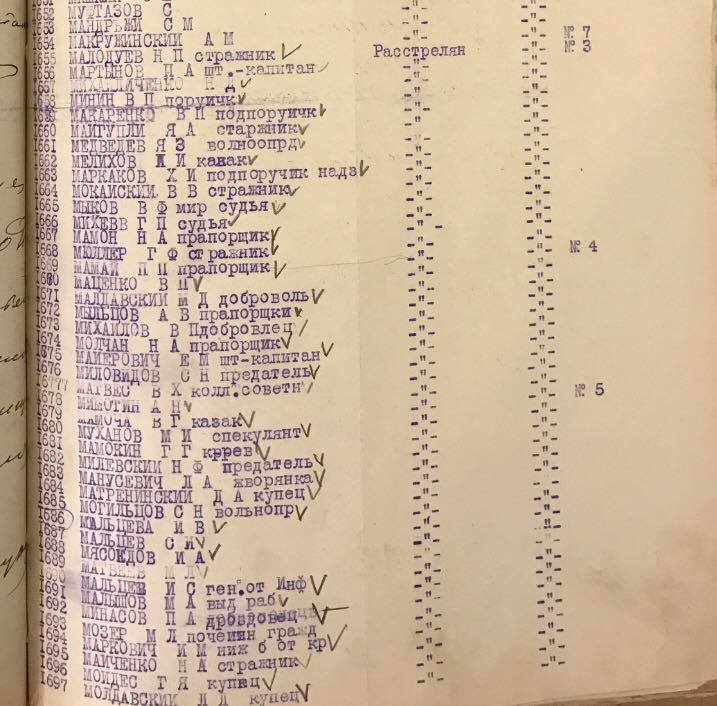 1652 С
1653 МАНДРЫЖИ С М
1654 МАКРУЖИНСКИЙ А М № 7
1655 МАЛОДУЕВ Н П стражник Расстрелян № 3
1656 МАРТЫНОВ П А шт.-капитан -"- -"-
1657 Н Д -"- -"-
1658 МИНИН В П поручик -"- -"-
1659 МАКАРЕНКО В П подпоручик -"- -"-
1660 МАИГУПЛИ Я А старжник -"- -"-
1661 МЕДВЕДЕВ Я З волноопрд -"- -"-
1662 МЕЛИХОВ И казак -"- -"-
1663 МАРКАКОВ Х И подпоручик надз -"- -"-
1664 МОКАИСКИЙ В В стражник -"- -"-
1665 МЫКОВ В Ф мир судья -"- -"-
1666 МИХЕЕВ Г П судья -"- -"-
1667 МАМОН Н А прапорщик -"- -"-
1668 МЮЛЛЕР Г Ф стражник -"- № 4
1669 МАМАЙ П П прапорщик -"- -"-
1670 МАЦЕНКО В П -"- -"-
1671 МАЛДАВСКИЙ М Д доброволь -"- -"-
1672 МЫЛЬЦОВ А В прапорщки -"- -"-
1673 МИХАЙЛОВ В П добровлец -"- -"-
1674 МОЛЧАН Н А прапорщик -"- -"-
1675 МАИЕРОВИЧ Е М шт-капитан -"- -"-
1676 МИЛОВИДОВ С Н предатель -"- -"-
1677 МАТВЕС В Х колл.советн -"- № 5
1678 А Н -"- -"-
1679 МАМОЧА В Г казак -"- -"-
1680 МУХАНОВ М И спекулянт -"- -"-
1681 МАМОКИН Г Г кррев -"- -"-
1682 МИЛЕВСКИЙ Н Ф предатель -"- -"-
1683 МАНУСЕВИЧ Л А жворянка -"- -"-
1684 МАТРЕНИНСКИЙ Д А купец -"- -"-
1685 МОГИЛЬЦОВ С Н вольнопр -"- -"-
1686 МАЛЬЦЕВА И В -"- -"-
1687 МАЛЬЦЕВ С И -"- -"-
1688 МЯСОЕДОВ И А -"- -"-
1689 МАТВЕЕВ -"- -"-
1690 МАЛЬЦЕВ И С ген.от Инф -"- -"-
1691 МАЛЫШОВ М А выд раб -"- -"-
1692 МИНАСОВ П А дроздовец -"- -"-
1693 МОЗЕР М Л гражд -"- -"-
1694 МАРКОВИЧ И М ниж б от кр -"- -"-
1695 МАИЧЕНКО Н А стражник -"- -"-
1696 МОИДЕС Г Я купец -"- -"-
1697 МОЛДАВСКИЙ Л Л купец -"- -"-